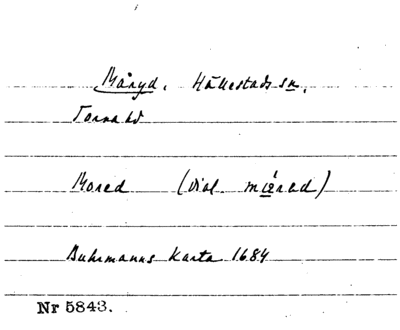 Måryd. Hällestads sn.
Torna hd
Mored (dial. mɷ́rəd)
Buhrmanns karta 1684
Nr 5843.